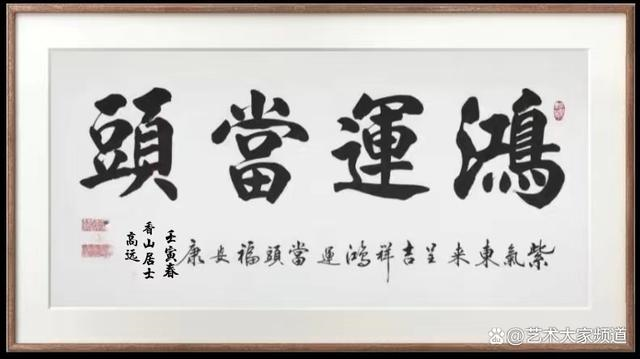 鴻運當頭
紫氣東来呈吉祥鸿運當頭福安康
壬寅春
香山居士
高远
艺术大家频道